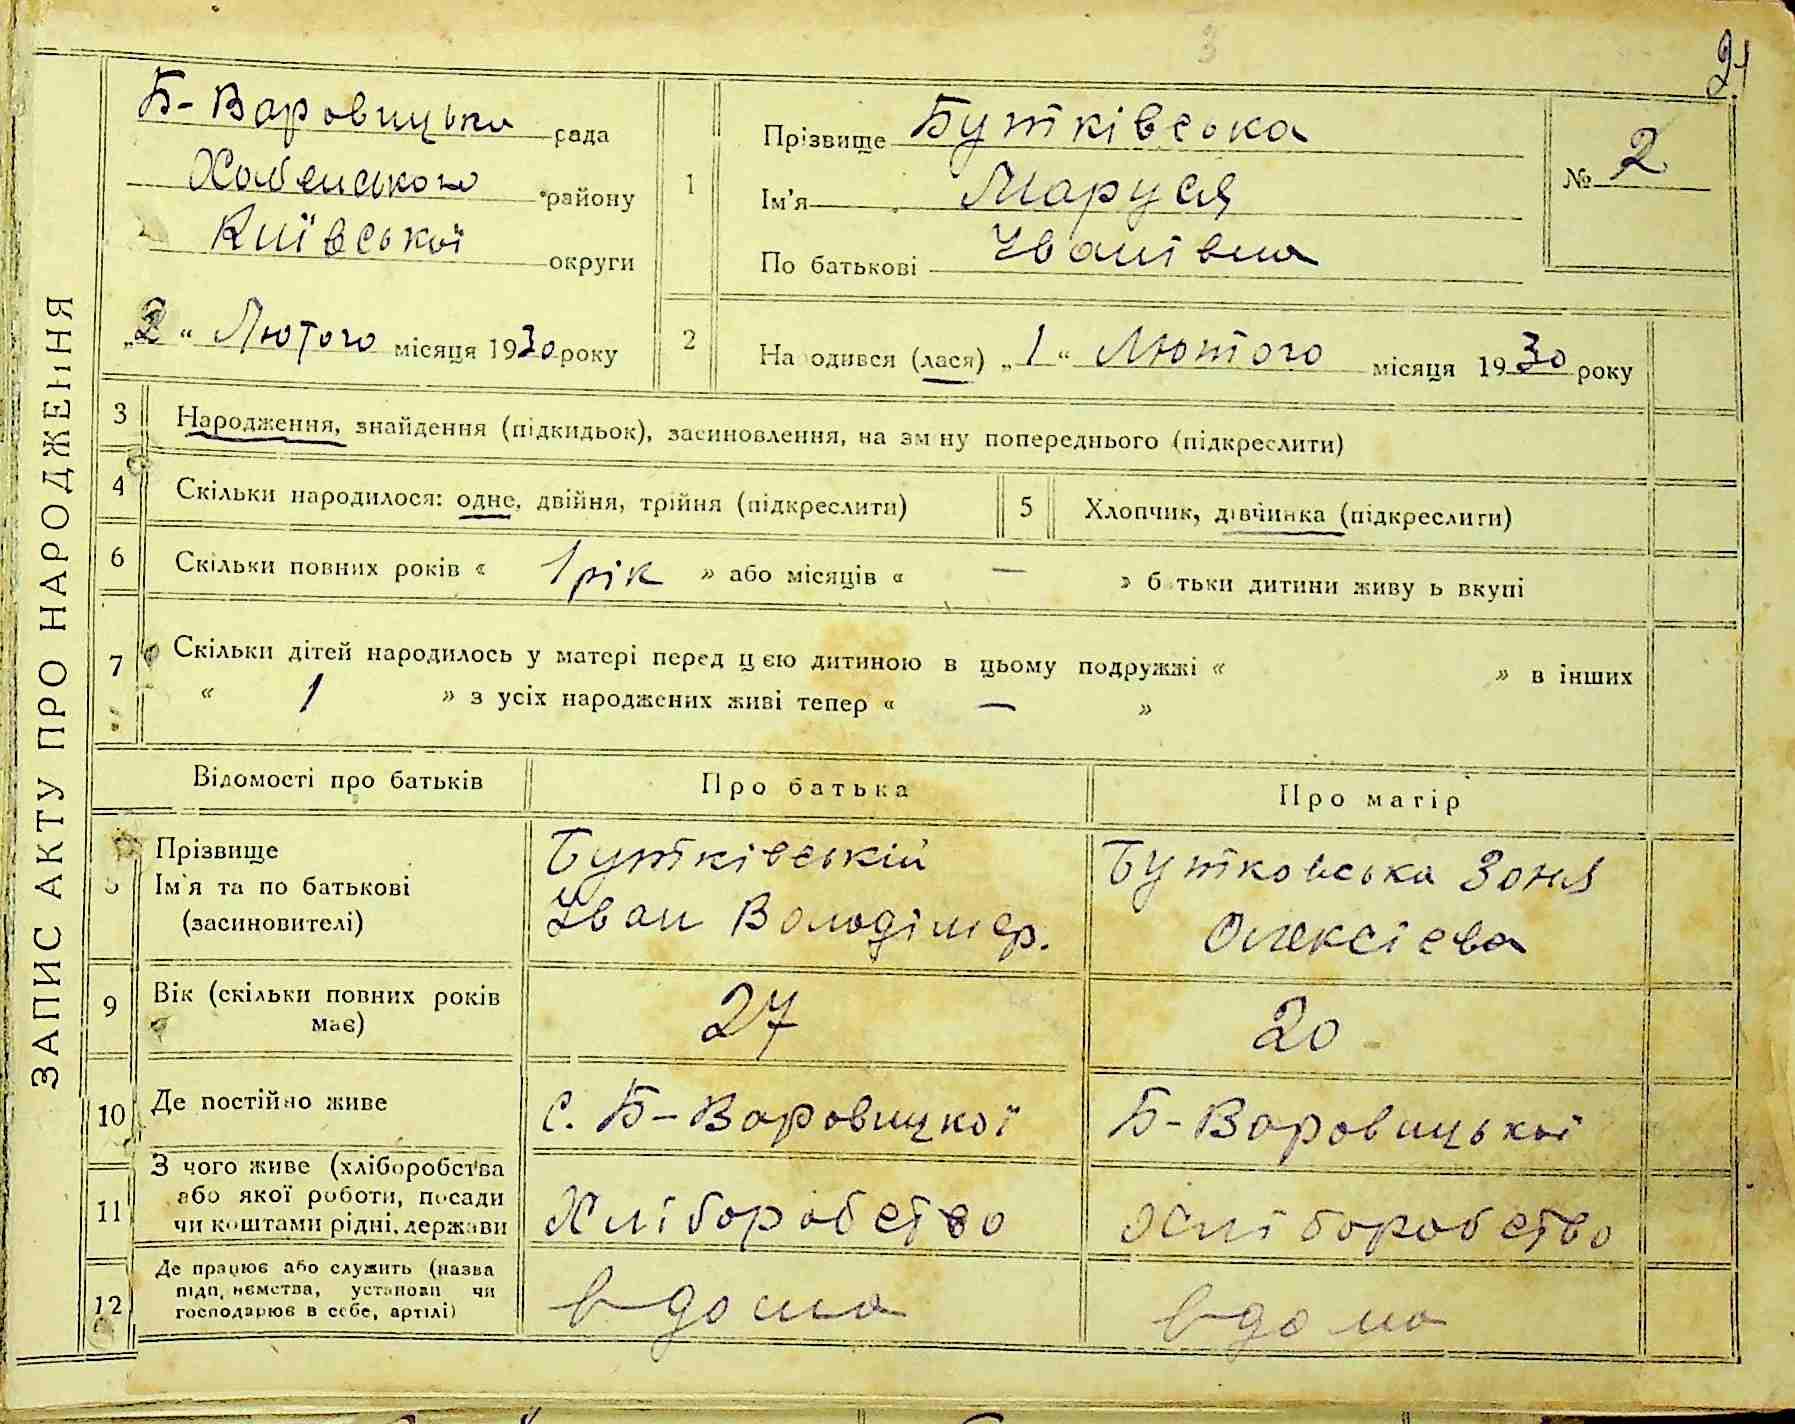 3
21
Б-Варовицька рада
Хабенського району
Київської округи
„2“ Лютого місяця 1930 року
1
Прізвище Бутківська
Ім'я Маруся
По батькові Іванівна
№ 2
2
На одився (лася) „1“ Лютого місяця 1930 року
ЗАПИС АКТУ ПРО НАРОДЖЕННЯ
3 Народження, знайдення (підкидьок), засиновлення, на зм ну попереднього (підкреслити)
4 Скільки народилося: одне, двійня, трійня (підкреслити)
5 Хлопчик, дівчинка (підкреслити)
6 Скільки повних років « 1 рік » або місяців « — » б тьки дитини живу ь вкупі
7 Скільки дітей народилось у матері перед цією дитиною в цьому подружжі « » в інших
« 1 » з усіх народжених живі тепер « — »
Відомості про батьків
Про батька
Про матір
Прізвище
Ім'я та по батькові
(засиновителі)
Бутківській
Іван Володімер.
Бутковська Зоня
Олексієва
9 Вік (скільки повних років
має)
27
20
10 Де постійно живе
с. Б-Варовицкої
Б-Варовицької
11 З чого живе (хліборобства
або якої роботи, посади
чи коштами рідні, держави
Хліборобство
Хліборобство
12 Де працює або служить (назва
підп, немства, установи чи
господарює в себе, артілі)
в дома
в дома